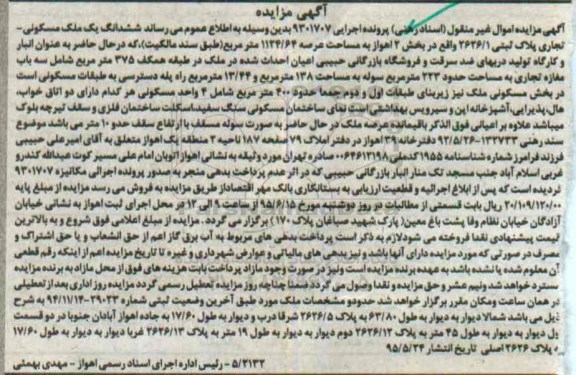 آگهی مزایده
آگهی مزایده اموال غیر منقول (اسناد رهنی) پرونده اجرایی ۹۳۰۱۷۰۷ بدین وسیله به اطلاع عموم می رساند ششدانگ یک ملک مسکونی-
تجاری پلاک ثبتی ۲۶۲۶/۱ واقع در بخش ۲ اهواز به مساحت عرصه ۱۱۳۴/۶۴ متر مربع (طبق سند مالکیت)، که در حال حاضر به عنوان انبار
و کارگاه تولید دربهای ضد سرقت و فروشگاه بازرگانی حبیبی اعیان احداث شده در ملک در طبقه همکف ۳۷۵ متر مربع شامل سه باب
مغازه تجاری به مساحت حدود ۲۲۳ مترمربع سوله به مساحت ۱۳۸ مترمربع و ۱۳/۴۴ مترمربع راه پله دسترسی به طبقات مسکونی است
در بخش مسکونی ملک نیز زیربنای طبقات اول و دوم جمعا حدود ۴۰۰ متر مربع شامل ۴ واحد مسکونی هر کدام دارای دو اتاق خواب،
هال، پذیرایی، آشپزخانه اپن و سرویس بهداشتی است نمای ساختمان مسکونی سنگ سفید، اسکلت ساختمان فلزی و سقف تیرچه بلوک
میباشد علاوه بر اعیانی فوق الذکر باقیمانده عرصه ملک در حال حاضر به صورت سوله مسقف با ارتفاع سقف حدود ۱۰ متر می باشد موضوع
سند رهنی ۱۳۲۷۳۳-۹۲/۵/۲۶ دفترخانه ۳۹ اهواز در دفتر املاک ۷۹ صفحه ۱۸۷ ناحیه ۳ منطقه یک اهواز متعلق به آقای امیرعلی حبیبی
فرزند فرامرز شماره شناسنامه ۱۹۵۵ کدملی ۰۰۶۴۶۱۲۱۹۸ صادره تهران مورد وثیقه به نشانی اهواز اتوبان امام علی مسیر کوت عبدالله کندرو
غربی اسلام آباد جنب مسجد تک منار انبار بازرگانی حبیبی که در اثر عدم پرداخت بدهی منجر به صدور پرونده اجرائی مکانیزه ۹۳۰۱۷۰۷
گردیده است که پس از ابلاغ اجرائیه و قطعیت ارزیابی به بستانکاری بانک مهر اقتصاد از طریق مزایده به فروش می رسد مزایده از مبلغ پایه
۲۰/۱۰۹/۱۲۰/۰۰۰ ریال بابت قسمتی از مطالبات در روز دوشنبه مورخ ۹۵/۶/۱۵ از ساعت ۹ الی ۱۲ در محل اجرای ثبت اهواز به نشانی خیابان
آزادگان خیابان نظام وفا پشت باغ معین( پارک شهید سباغان پلاک ۱۷۰ ) برگزار می گردد. مزایده از مبلغ اعلامی فوق شروع و به بالاترین
قیمت پیشنهادی نقدا فروخته می شود لازم به ذکر است پرداخت بدهی های مربوط به آب برق گاز اعم از حق انشعاب و یا حق اشتراک و
مصرف در صورتی که مورد مزایده دارای آنها باشد و نیز بدهی های مالیاتی و عوارض شهرداری و غیره تا تاریخ مزایده اعم از اینکه رقم قطعی
آن معلوم شده یا نشده باشد به عهده برنده مزایده است و نیز در صورت وجود مازاد پرداخت بابت هزینه های فوق از محل مازاد به برنده مزایده
مسترد خواهد شد و نیم عشر و حق مزایده و نقدا وصول می گردد ضمنا چنانچه روز مزایده تعطیل رسمی گردد مزایده روز اداری بعد از تعطیلی
در همان ساعت و مکان مقرر برگزار خواهد شد حدود و مشخصات ملک مورد طبق آخرین وضعیت ثبتی شماره ۲۹۰۲۳-۹۴/۱۱/۱۴ به شرح
ذیل می باشد شمالا دیوار به دیوار به طول ۶۳/۸۰ به پلاک ۲۶۲۶/۵ شرقا درب و دیوار به طول ۱۷/۶۰ به جاده اهواز آبادان جنوبا در دو قسمت
دیوار به دیوار به طول ۴۵ متر به پلاک ۲۶۲۶/۱۲ دوم دیوار به دیوار به طول ۱۹ متر به پلاک ۲۶۲۶/۱۳ غربا دیوار به دیوار به طول ۱۷/۶۰
به پلاک ۲۶۲۶ اصلی تاریخ انتشار ۹۵/۵/۲۴
۵/۲۱۳۲ - رئیس اداره اجرای اسناد رسمی اهواز - مهدی بهمئی